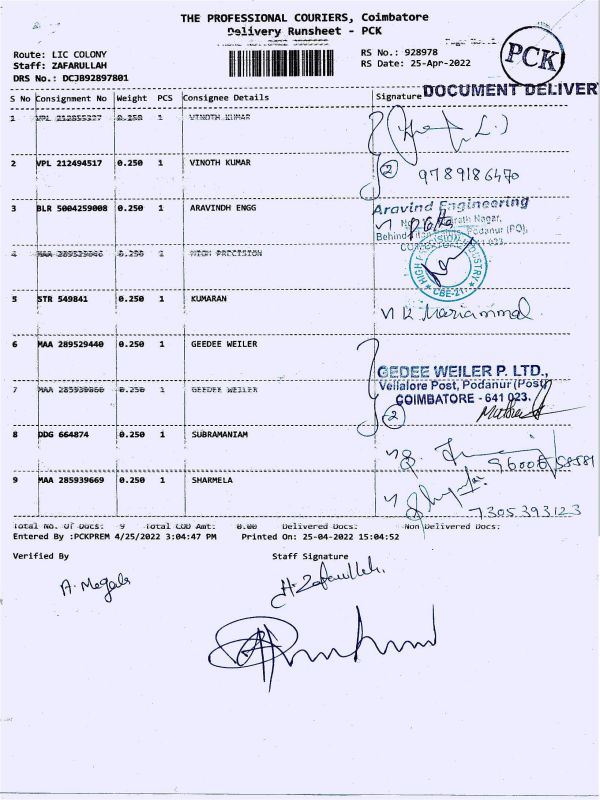 THE PROFESSIONAL COURIERS, Coimbatore
Delivery Runsheet - PCK
Route: LIC COLONY
RS No.: 928978
Staff: ZAFARULLAH
RS Date: 25-Apr-2022
DRS No.: DCJB92897801
PCK
DOCUMENT DELIVER
S No Consignment No Weight PCS Consignee Details Signature
1 VPL 212855327 0.250 1 VINOTH KUMAR
2 VPL 212494517 0.250 1 VINOTH KUMAR
2
9789186470
3 BLR 5004259008 0.250 1 ARAVINDH ENGG
Aravind Engineering
Nagar,
Behind Podanur (PO),
4 MAA 0.250 1 HIGH PRECISION
HIGH PRECISION INDUSTRY
CBE-21.
5 STR 549841 0.250 1 KUMARAN
K. Mariammal
6 MAA 289529440 0.250 1 GEEDEE WEILER
GEDEE WEILER P. LTD.,
Vellalore Post, Podanur (Post)
COIMBATORE - 641 023.
7 MAA 0.250 1 GEEDEE WEILER
2
8 DDG 664874 0.250 1 SUBRAMANIAM
9 MAA 285939669 0.250 1 SHARMELA
7305393123
Total No. Of Docs: 9 Total COD Amt: 0.00 Delivered Docs: Non Delivered Docs:
Entered By :PCKPREM 4/25/2022 3:04:47 PM Printed On: 25-04-2022 15:04:52
Verified By Staff Signature
A. Megala
H. Zafarullah.